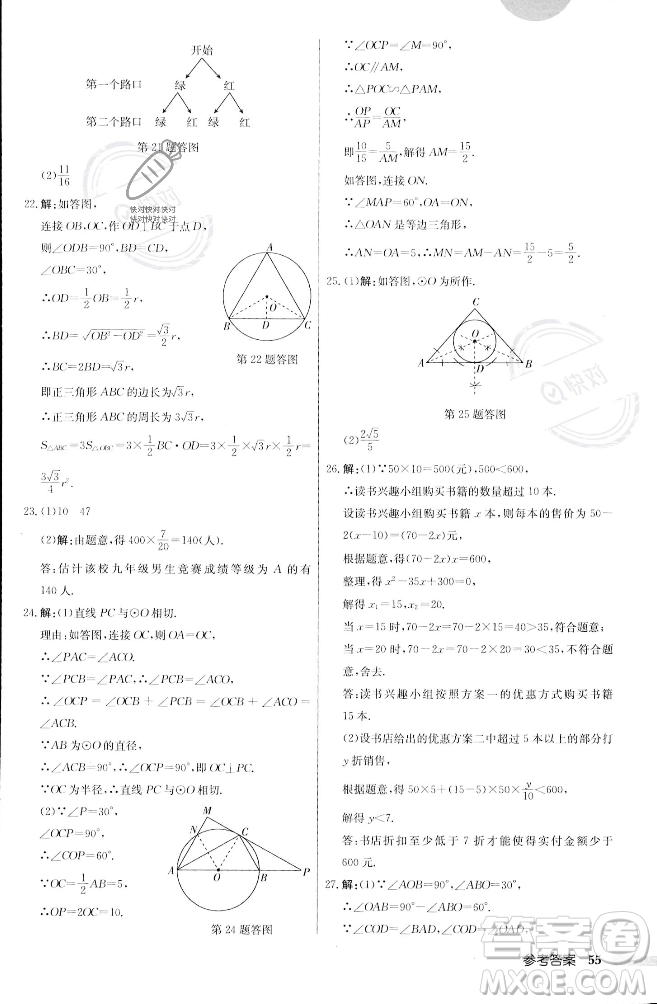 开始
第一个路口 绿 红
第二个路口 绿 红 绿 红
第 21 题答图
(2)11/16
22.解:如答图,
连接 OB,OC,作 OD⊥BC 于点 D,
则∠ODB=90°,BD=CD,
∠OBC=30°,
∴OD=1/2OB=1/2r,
∴BD=√(OB²-OD²)=√3/2r,
∴BC=2BD=√3r,
即正三角形 ABC 的边长为√3r,
∴正三角形 ABC 的周长为 3√3r,
S△ABC=3S△OBC=3×1/2BC·OD=3×1/2×√3r×1/2r=
3√3/4r².
A
O
B D C
第 22 题答图
23.(1)10 47
(2)解:由题意,得 400×7/20=140(人).
答:估计该校九年级男生竞赛成绩等级为 A 的有
140 人.
24.解:(1)直线 PC 与⊙O 相切.
理由:如答图,连接 OC,则 OA=OC,
∴∠PAC=∠ACO.
∵∠PCB=∠PAC,∴∠PCB=∠ACO,
∴∠OCP=∠PCB+∠OCB=∠ACO+∠OCB=
∠ACB.
∵AB 为⊙O 的直径,
∴∠ACB=90°,∴∠OCP=90°,即 OC⊥PC.
∵OC 为半径,∴直线 PC 与⊙O 相切.
(2)∵∠P=30°,
∠OCP=90°,
∴∠COP=60°.
∵OC=1/2AB=5,
∴OP=2OC=10.
M
N C
A O B P
第 24 题答图
∵∠OCP=∠M=90°,
∴OC∥AM,
∴△POC∽△PAM,
∴OP/AP=OC/AM,
即10/15=5/AM,解得 AM=15/2.
如答图,连接 ON.
∵∠MAP=60°,OA=ON,
∴△OAN 是等边三角形,
∴AN=OA=5,∴MN=AM-AN=15/2-5=5/2.
25.(1)解:如答图,⊙O 为所作.
C
O
A B
第 25 题答图
(2)2√5/5
26.解:(1)∵50×10=500(元),500<600,
∴读书兴趣小组购买书籍的数量超过 10 本.
设读书兴趣小组购买书籍 x 本,则每本的售价为50-
2(x-10)=(70-2x)元,
根据题意,得 x(70-2x)=600,
整理,得 x²-35x+300=0,
解得 x₁=15,x₂=20.
当 x=15 时,70-2x=70-2×15=40>35,符合题意;
当 x=20 时,70-2x=70-2×20=30<35,不符合题
意,舍去.
答:读书兴趣小组按照方案一的优惠方式购买书籍
15 本.
(2)设书店给出的优惠方案二中超过 5 本以上的部分打
y 折销售,
根据题意,得 50×5+(15-5)×50×y/10<600,
解得 y<7.
答:书店折扣至少低于 7 折才能使得实付金额少于
600 元.
27.解:(1)∵∠AOB=90°,∠ABO=30°,
∴∠OAB=90°-30°=60°.
∵∠COD=∠AOB=90°,
快对快对快对
快对快对快对
快对
答案圈
MXQE.COM
参考答案 55